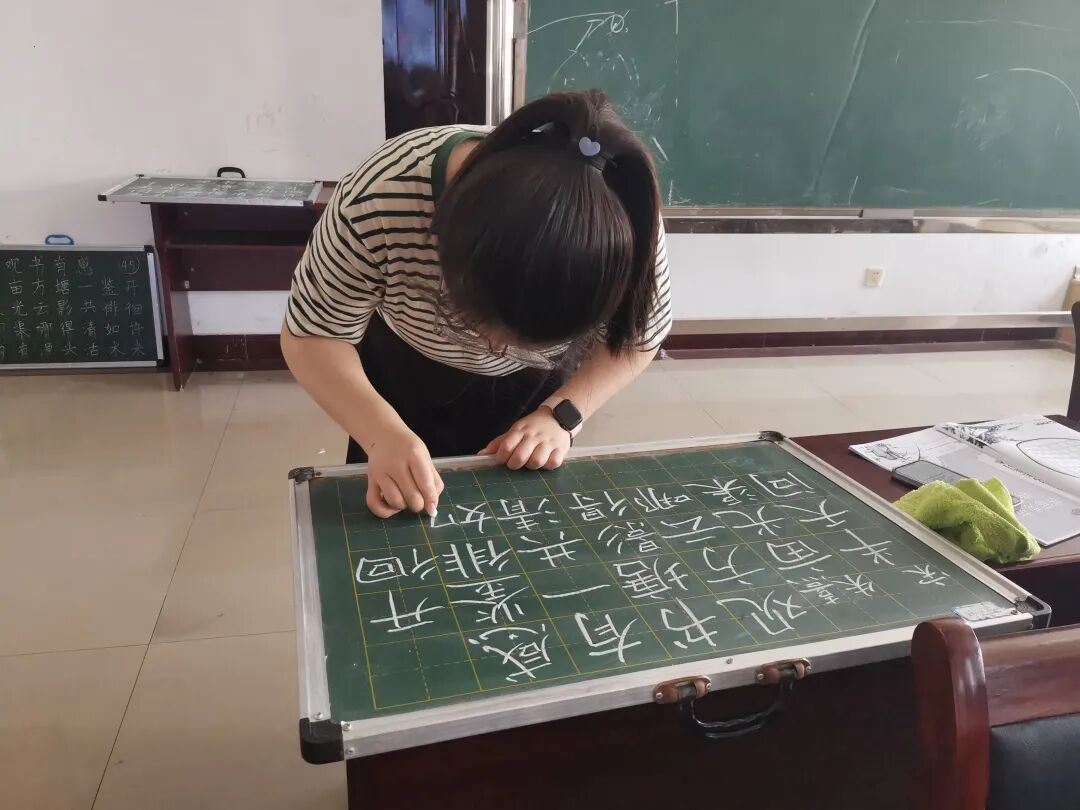 观书有感 (45)
亩方塘一鉴开
光云影共徘徊
渠哪得清如许
有源头活水来
宋 朱熹 观书有感
半亩方塘一鉴开
天光云影共徘徊
问渠哪得清如